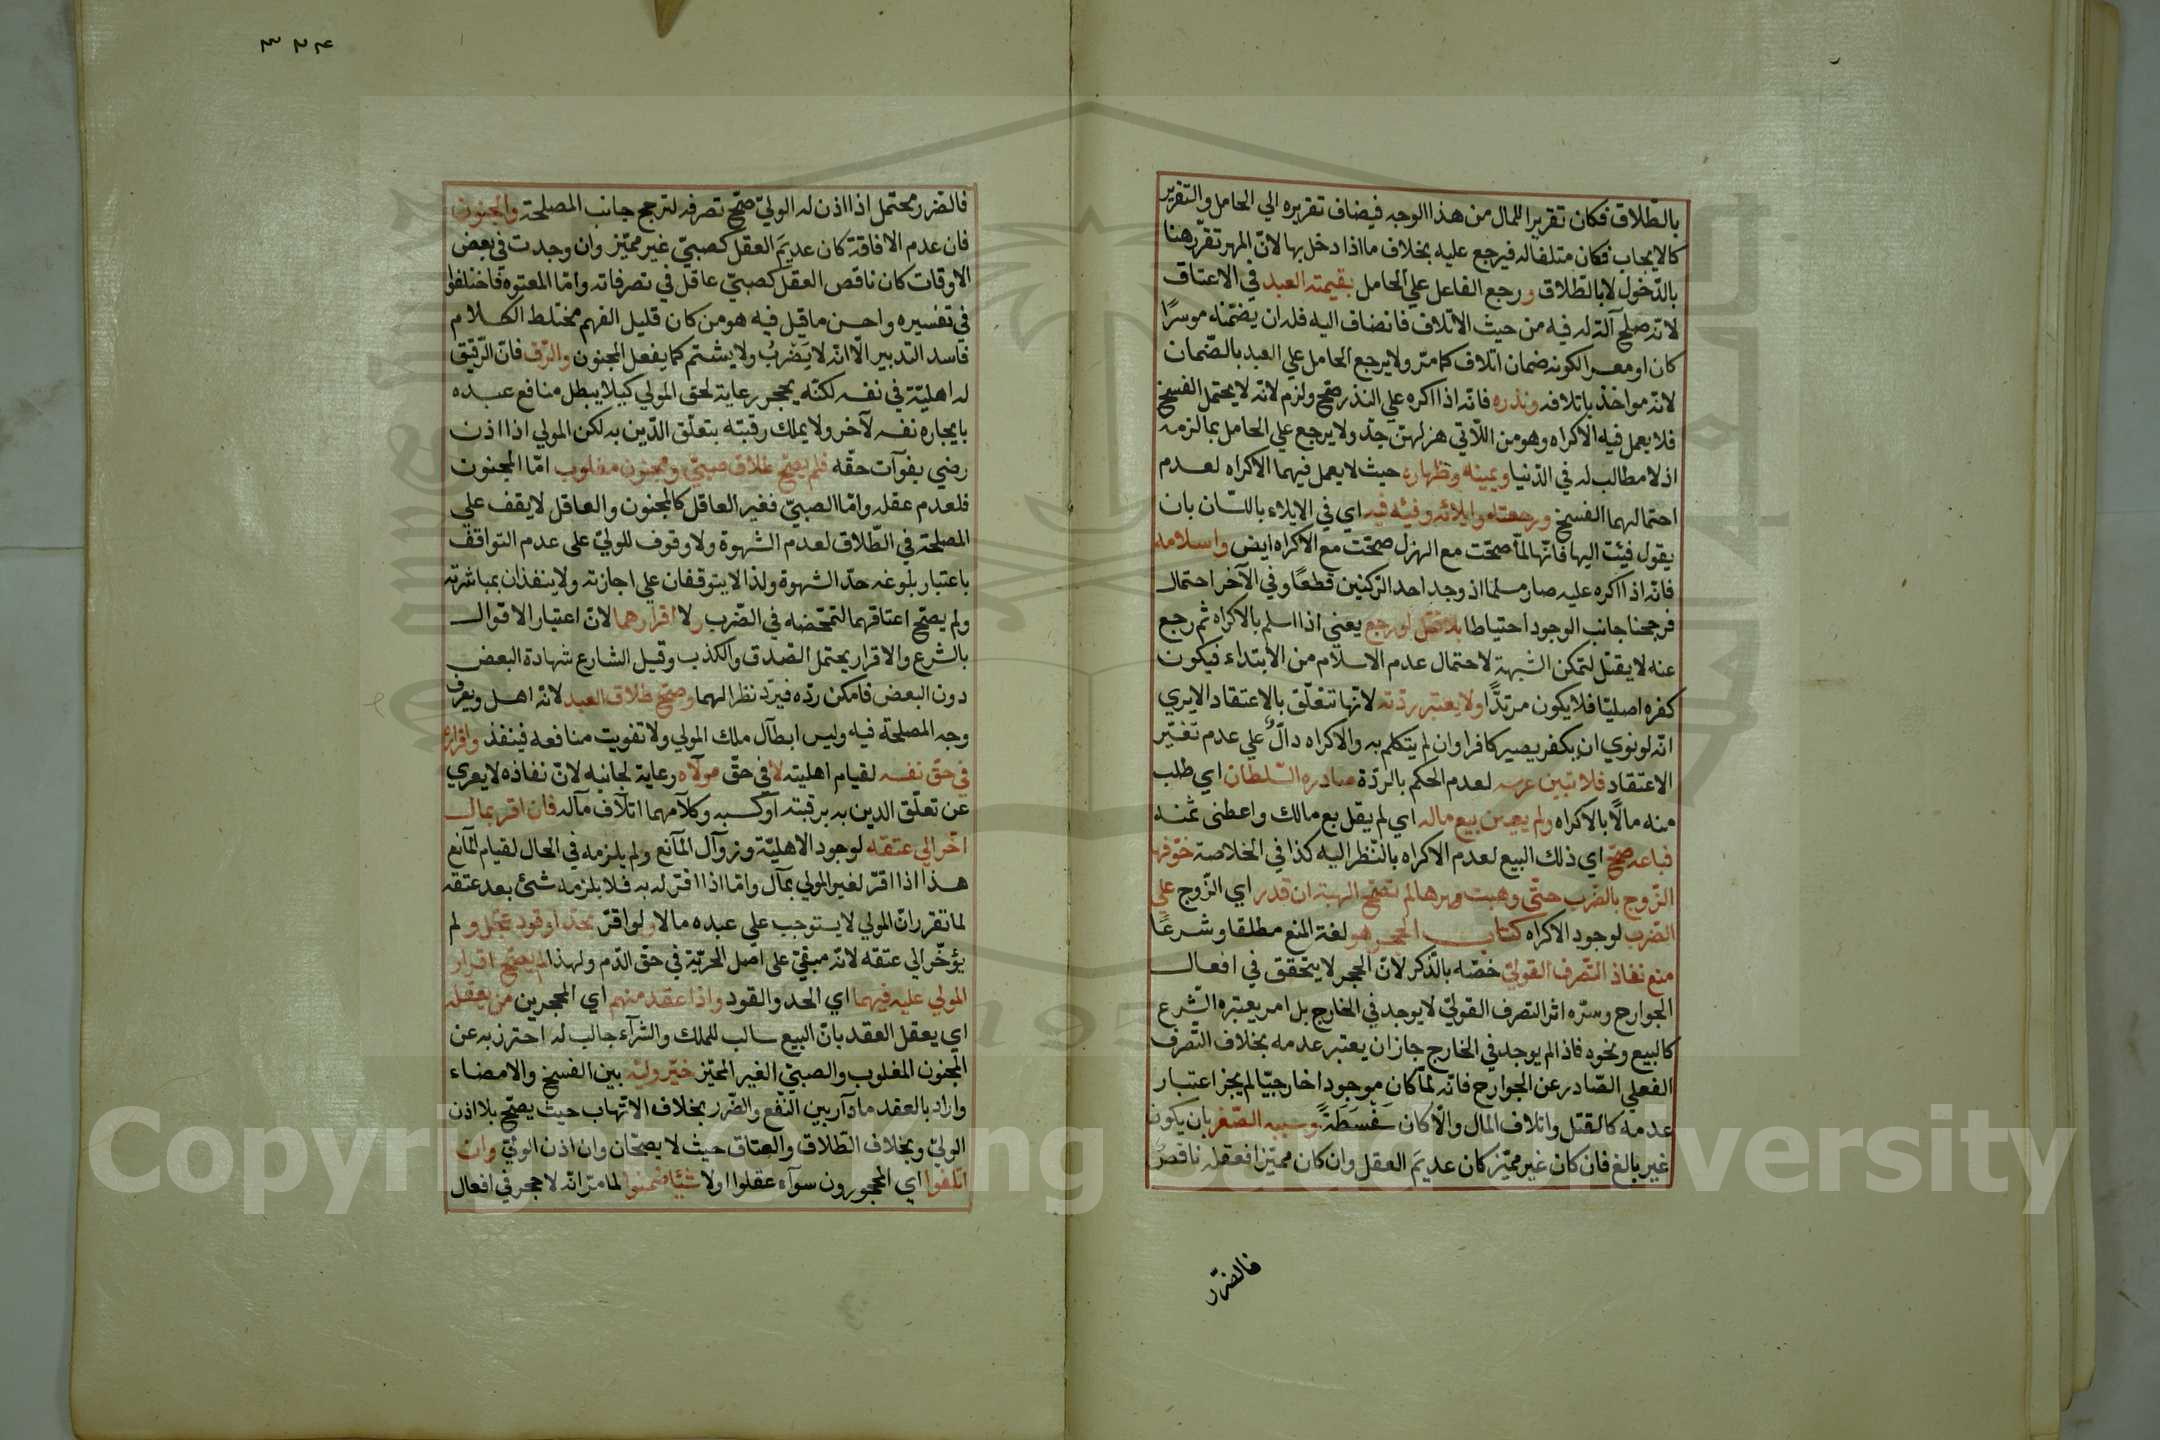 بالطّلاق فكان تقريرا للمال من هذا الوجه فيضاف تقريره الي الحامل والتقرير
كالايجاب فكان متلفا له فيرجع عليه بخلاف ما اذا دخل بها لانّ المهر تقرّر هنا
بالدّخول لا بالطّلاق ورجع الفاعل علي الحامل بقيمته العبد في الاعتاق
لانّه صلح آلة له فيه من حيث الاتلاف فانضاف اليه فله ان يضمّنه موسرًا
كان او معسرا لكونه ضمان اتلاف كما مرّ ولا يرجع الحامل علي العبد بالضّمان
لانّه مواخذ باتلافه ونذره فانّه اذا اكره علي النذر صحّ ولزم لانّه لا يحتمل الفسخ
فلا يعمل فيه الاكراه وهو من اللّاتي هزلهنّ جدّ ولا يرجع علي الحامل بما لزمه
اذ لا مطالب له في الدّنيا ويمينه وظهاره حيث لا يعمل فيهما الاكراه لعدم
احتمالهما الفسخ ورجعته وايلائه وفيئه فيه اي في الايلاء باللّسان بان
يقول فيئت اليها فانّها لمّا صحّت مع الهزل صحّت مع الاكراه ايض واسلامه
فانّه اذا اكره عليه صار مسلما اذ وجد احد الرّكنين قطعًا وفي الآخر احتمال
فرجحنا جانب الوجود احتياطا بلا قتل لو رجع يعني اذا اسلم بالاكراه ثم رجع
عنه لا يقتل لتمكن الشبهة لاحتمال عدم الاسلام من الابتداء فيكون
كفره اصليّا فلا يكون مرتدًّا ولا يعتبر ردّته لانّها تتعلّق بالاعتقاد الا يري
انّه لو نوي ان يكفر يصير كافرا وان لم يتكلم به والاكراه دالّ علي عدم تغيّر
الاعتقاد فلا تبين عرسه لعدم الحكم بالردّة صادره السّلطان اي طلب
منه مالًا بالاكراه ولم يعين بيع ماله اي لم يقل بع مالك واعطني ثمنه
فباعه صحّ اي ذلك البيع لعدم الاكراه بالنّظر اليه كذا في الخلاصة خوّفها
الزّوج بالضّرب حتّي وهبت مهرها لم تصحّ الهبة ان قدر اي الزّوج علي
الضّرب لوجود الاكراه كتاب الحجر هو لغة المنع مطلقا وشرعًا
منع نفاذ التّصرف القوليّ خصّه بالذّكر لانّ الحجر لا يتحقق في افعال
الجوارح وسرّه اثر التصرف القوليّ لا يوجد في الخارج بل امر يعتبره الشّرع
كالبيع ونحوه فاذ الم يوجد في الخارج جاز ان يعتبر عدمه بخلاف التّصرف
الفعلي الصّادر عن الجوارح فانّه لمّا كان موجودا خارجيّا لم يجز اعتبار
عدمه كالقتل واتلاف المال والّا كان سَفْسَطَةً وسببه الصّغر بان يكون
غير بالغ فان كان غير مميّز كان عديمَ العقل وان كان مميّزا فعقله ناقص
فالضّرر
٣٢٤
فالضّرر محتمل اذا اذن له الوليّ صحّ تصرفه لترجح جانب المصلحة والجنون
فان عدم الافاقة كان عديمَ العقل كصبيّ غير مميّز وان وجدت في بعض
الاوقات كان ناقص العقل كصبيّ عاقل في تصرفاته وامّا المعتوه فاختلفوا
في تفسيره واحسن ما قيل فيه هو من كان قليل الفهم مختلط الكلام
فاسد التدبير الّا انّه لا يَضْرِبُ ولا يشتم كما يفعل المجنون والرّق فانّ الرّقيق
له اهليّة في نفسه لكنّه يحجر رعاية لحق المولي كيلا يبطل منافع عبده
بايجاره نفسه لآخر ولا يملك رقبته بتعلّق الدّين به لكن المولي اذا اذن
رضي بفوآت حقّه فلم يصحّ طلاق صبيّ ومجنون مغلوب امّا المجنون
فلعدم عقله وامّا الصبيّ فغير العاقل كالمجنون والعاقل لا يقف علي
المصلحة في الطّلاق لعدم الشهوة ولا وقوف للوليّ علي عدم التوافق
باعتبار بلوغه حدّ الشهوة ولذا لا يتوقفان علي اجازته ولا ينفذان بمباشرته
ولم يصحّ اعتاقهما لتمحّضه في الضّرب ولا اقرارهما لانّ اعتبار الاقوال
بالشرع والاقرار يحتمل الصّدق والكذب وقبل الشارع شهادة البعض
دون البعض فامكن ردّه فيردّ نظرا لهما وصحّ طلاق العبد لانّه اهل ويعرف
وجه المصلحة فيه وليس ابطآل ملك المولي ولا تفويت منافعه فينفذ واقراره
في حقّ نفسه لقيام اهليته لا في حقّ مولآه رعاية لجانبه لانّ نفاذه لا يعري
عن تعلّق الدين به برقبته آو كسبه وكلآمهما اتلآف مآله فان اقر بمال
اخّر الي عتقه لوجود الاهليّة وزوآل المآنع ولم يلزمه في الحال لقيام المآنع
هذا اذا اقرّ لغير المولي بمآل وامّا اذا اقرّ له به فلا يلزمه شئ بعد عتقه
لما تقرر انّ المولي لا يستوجب علي عبده مالا ولو اقرّ بحدّ او قود عجّل ولم
يؤخّر الي عتقه لانّه مبقيّ علي اصل الحرّيّة في حقّ الدّم ولهذا لم يصحّ اقرار
المولي عليه فيهما اي الحد والقود واذا عقد منهم اي المحجرين من يعقله
اي يعقل العقد بانّ البيع سالب للملك والشرآء جالب له احترز به عن
المجنون المغلوب والصبيّ الغير المميّز خيّر وليّه بين الفسخ والامضاء
واراد بالعقد ما دآر بين النّفع والضّرر بخلاف الاتّهاب حيث يصحّ بلا اذن
الوليّ وبخلاف الطّلاق والعتاق حيث لا يصحّان وان اذن الوليّ وان
اتلفوا اي المحجورون سوآء عقلوا او لا شيئا ضمنوا لما مرّ انّه لا حجر في افعال
Copyright © King Saud University